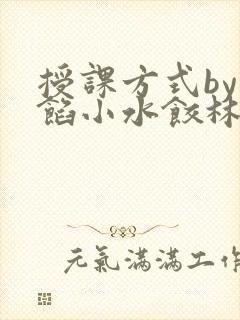 授課方式by
餡小水餃林
元氣滿滿工作